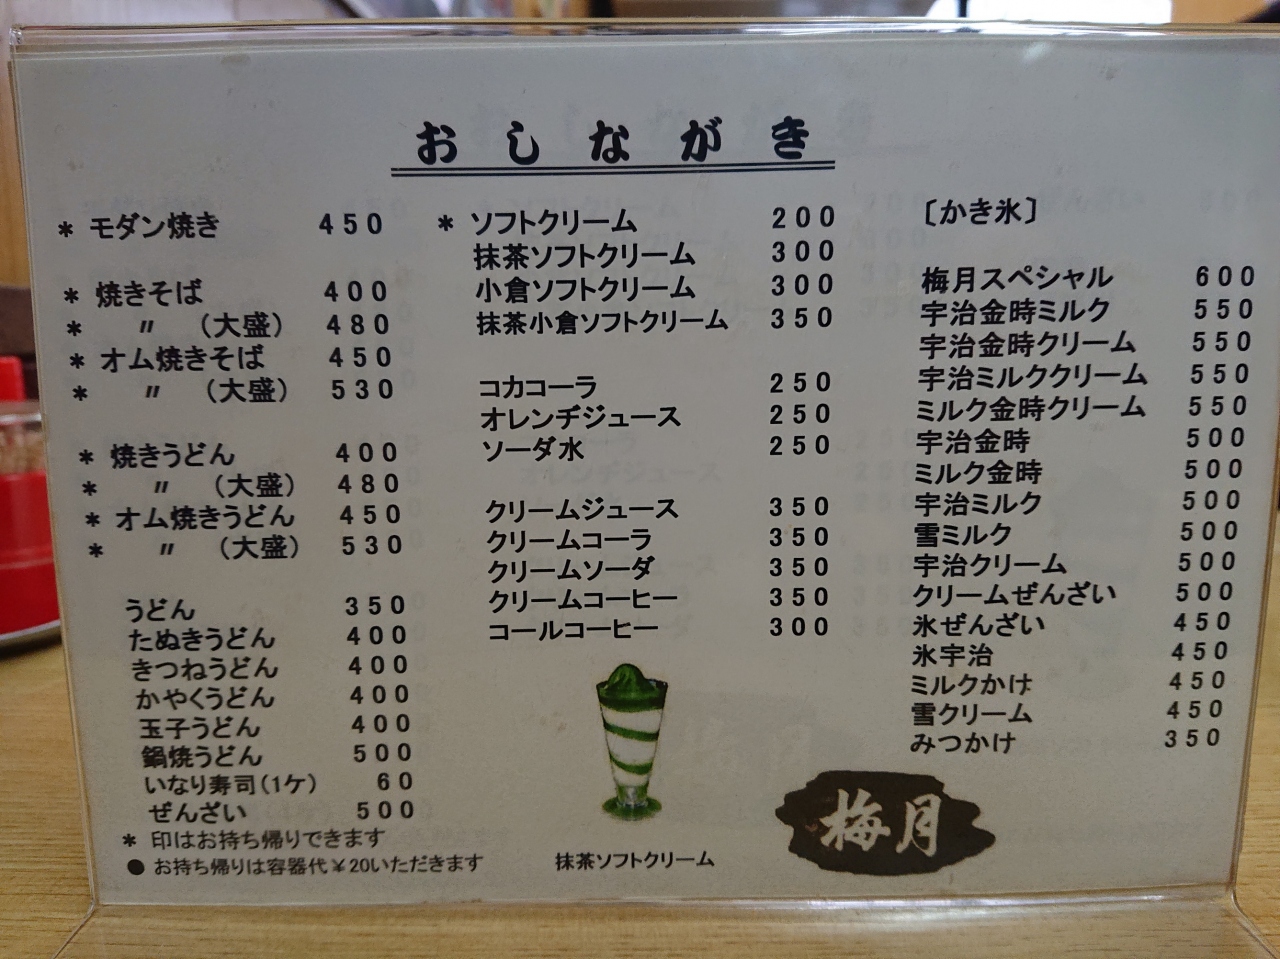 おしながき
* モダン焼き 450
* 焼きそば 400
* 〃 (大盛) 480
* オム焼きそば 450
* 〃 (大盛) 530
* 焼きうどん 400
* 〃 (大盛) 480
* オム焼きうどん 450
* 〃 (大盛) 530
うどん 350
たぬきうどん 400
きつねうどん 400
かやくうどん 400
玉子うどん 400
鍋焼うどん 500
いなり寿司(1ケ) 60
ぜんざい 500
* 印はお持ち帰りできます
● お持ち帰りは容器代¥20いただきます
* ソフトクリーム 200
抹茶ソフトクリーム 300
小倉ソフトクリーム 300
抹茶小倉ソフトクリーム 350
コカコーラ 250
オレンヂジュース 250
ソーダ水 250
クリームジュース 350
クリームコーラ 350
クリームソーダ 350
クリームコーヒー 350
コールコーヒー 300
抹茶ソフトクリーム
〔かき氷〕
梅月スペシャル 600
宇治金時ミルク 550
宇治金時クリーム 550
宇治ミルククリーム 550
ミルク金時クリーム 550
宇治金時 500
ミルク金時 500
宇治ミルク 500
雪ミルク 500
宇治クリーム 500
クリームぜんざい 500
氷ぜんざい 450
氷宇治 450
ミルクかけ 450
雪クリーム 450
みつかけ 350
梅月